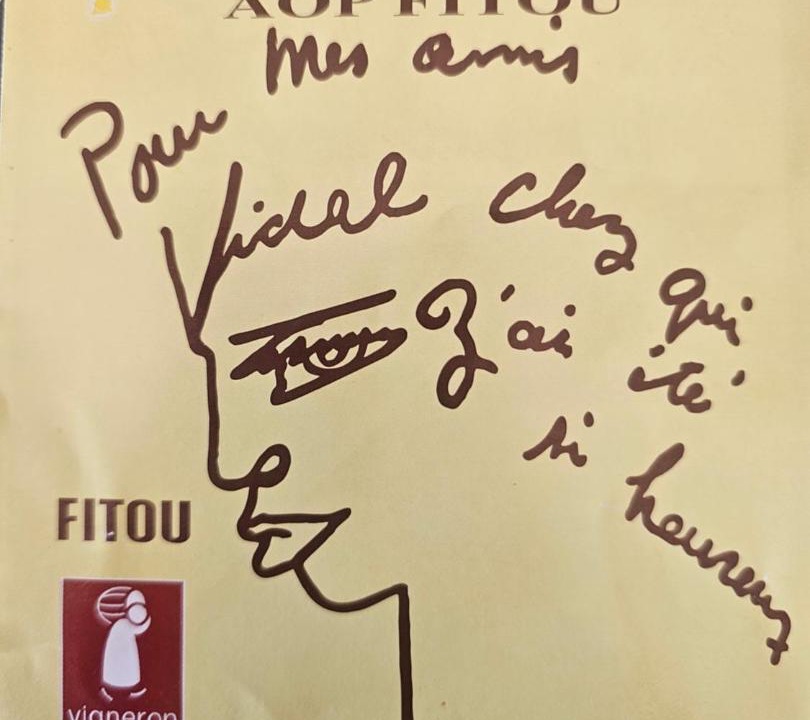 AOP FITOU
Mes amis
Pour
Vidal chez
qui
J'ai été
si heureux
FITOU
vigneron